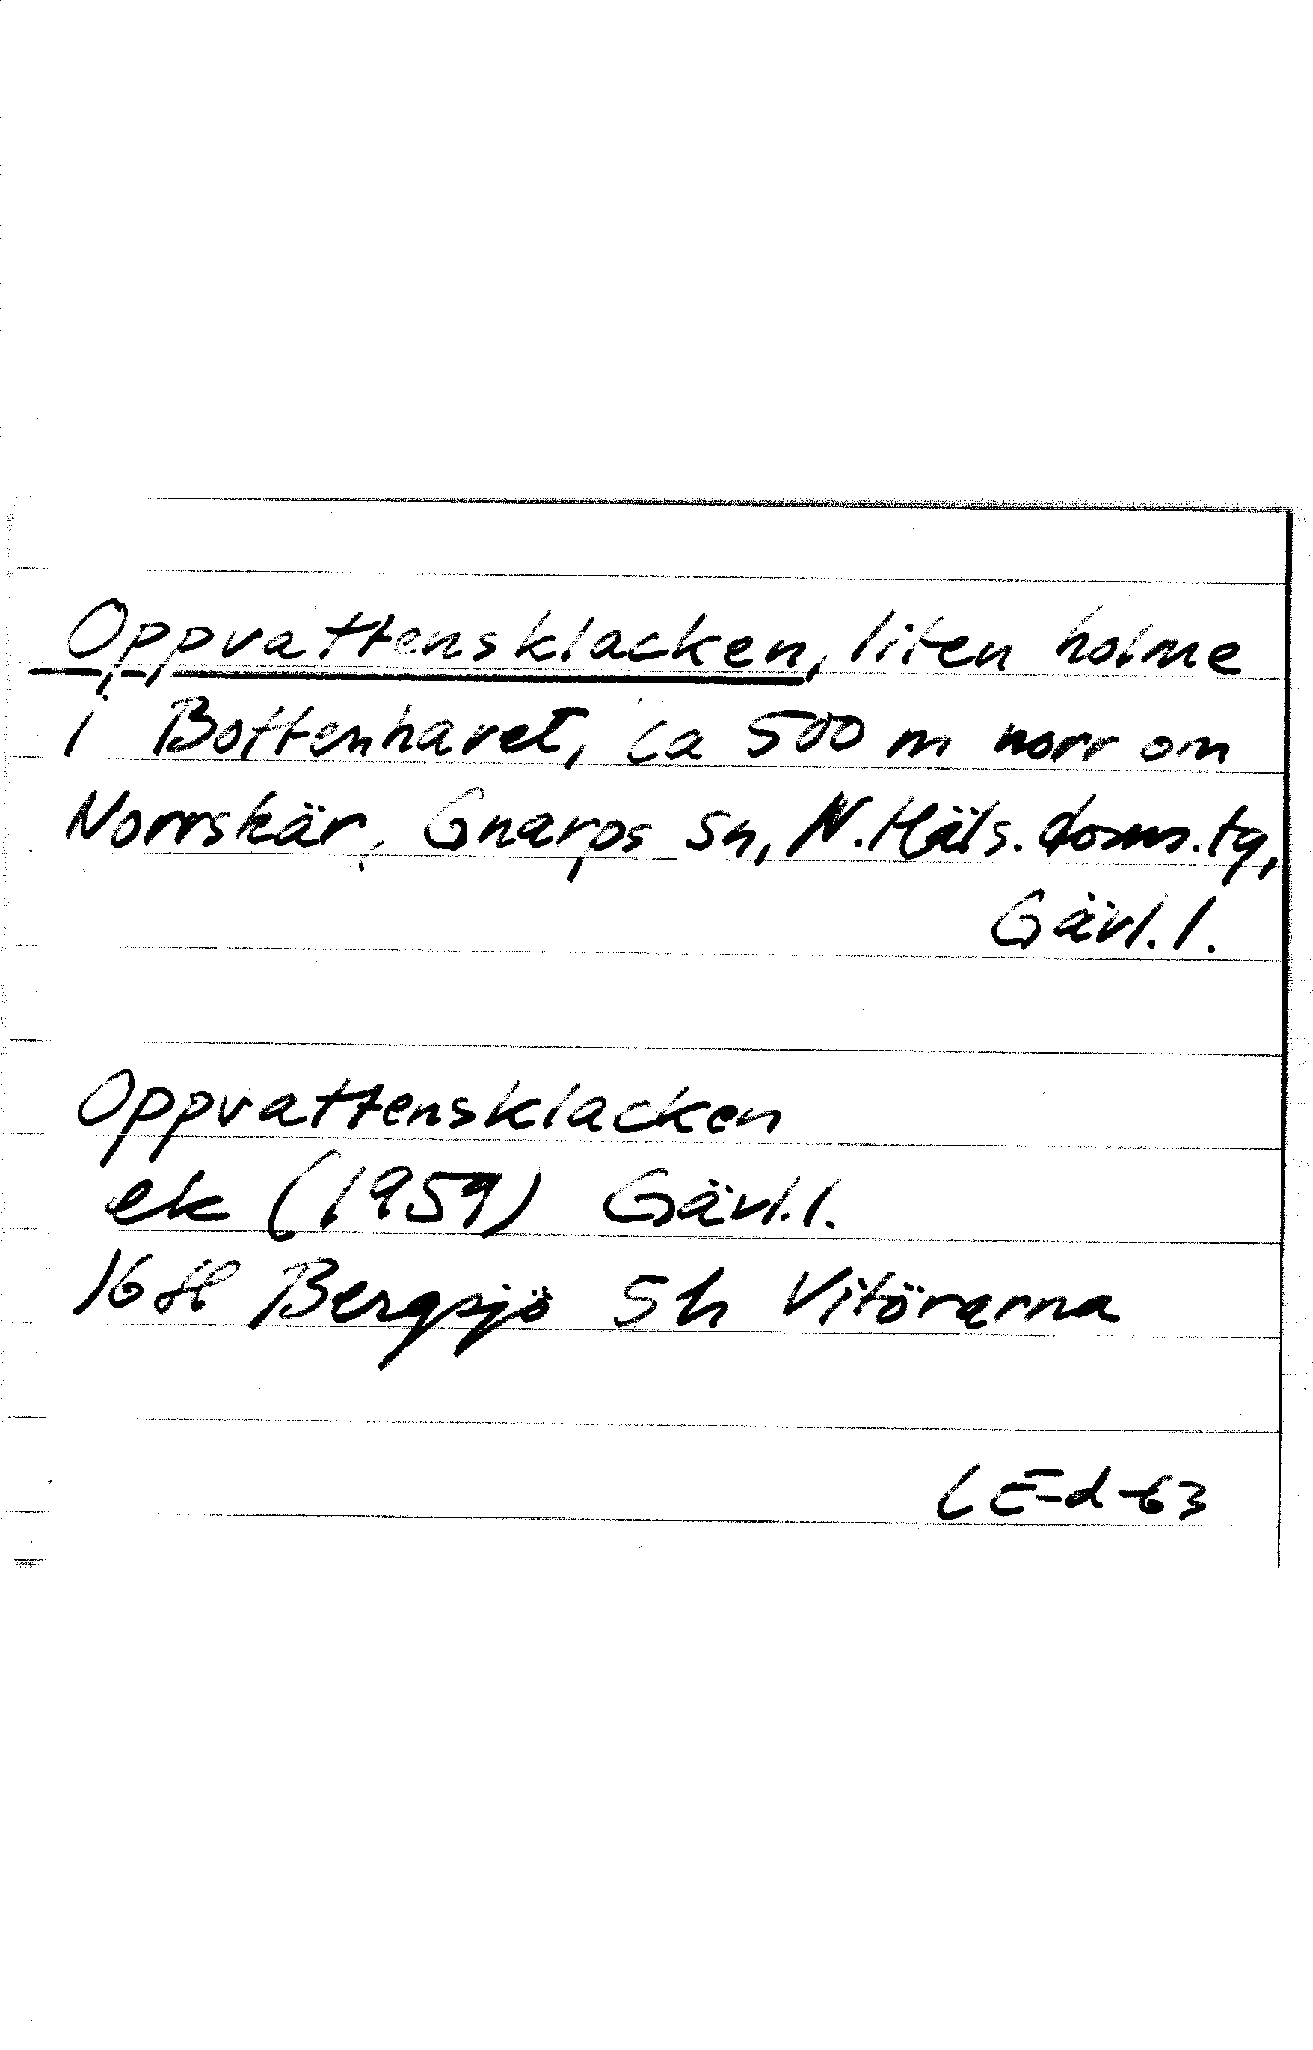 Oppvattensklacken, liten holme
i Bottenhavet, ca 500 m norr om
Norrskär, Gnarps sn, N. Häls. doms. tg,
Gävl. l.
Oppvattensklacken
ek (1959) Gävl. l.
16 H Bergsjö 5h Vitörarna
CE-d-63